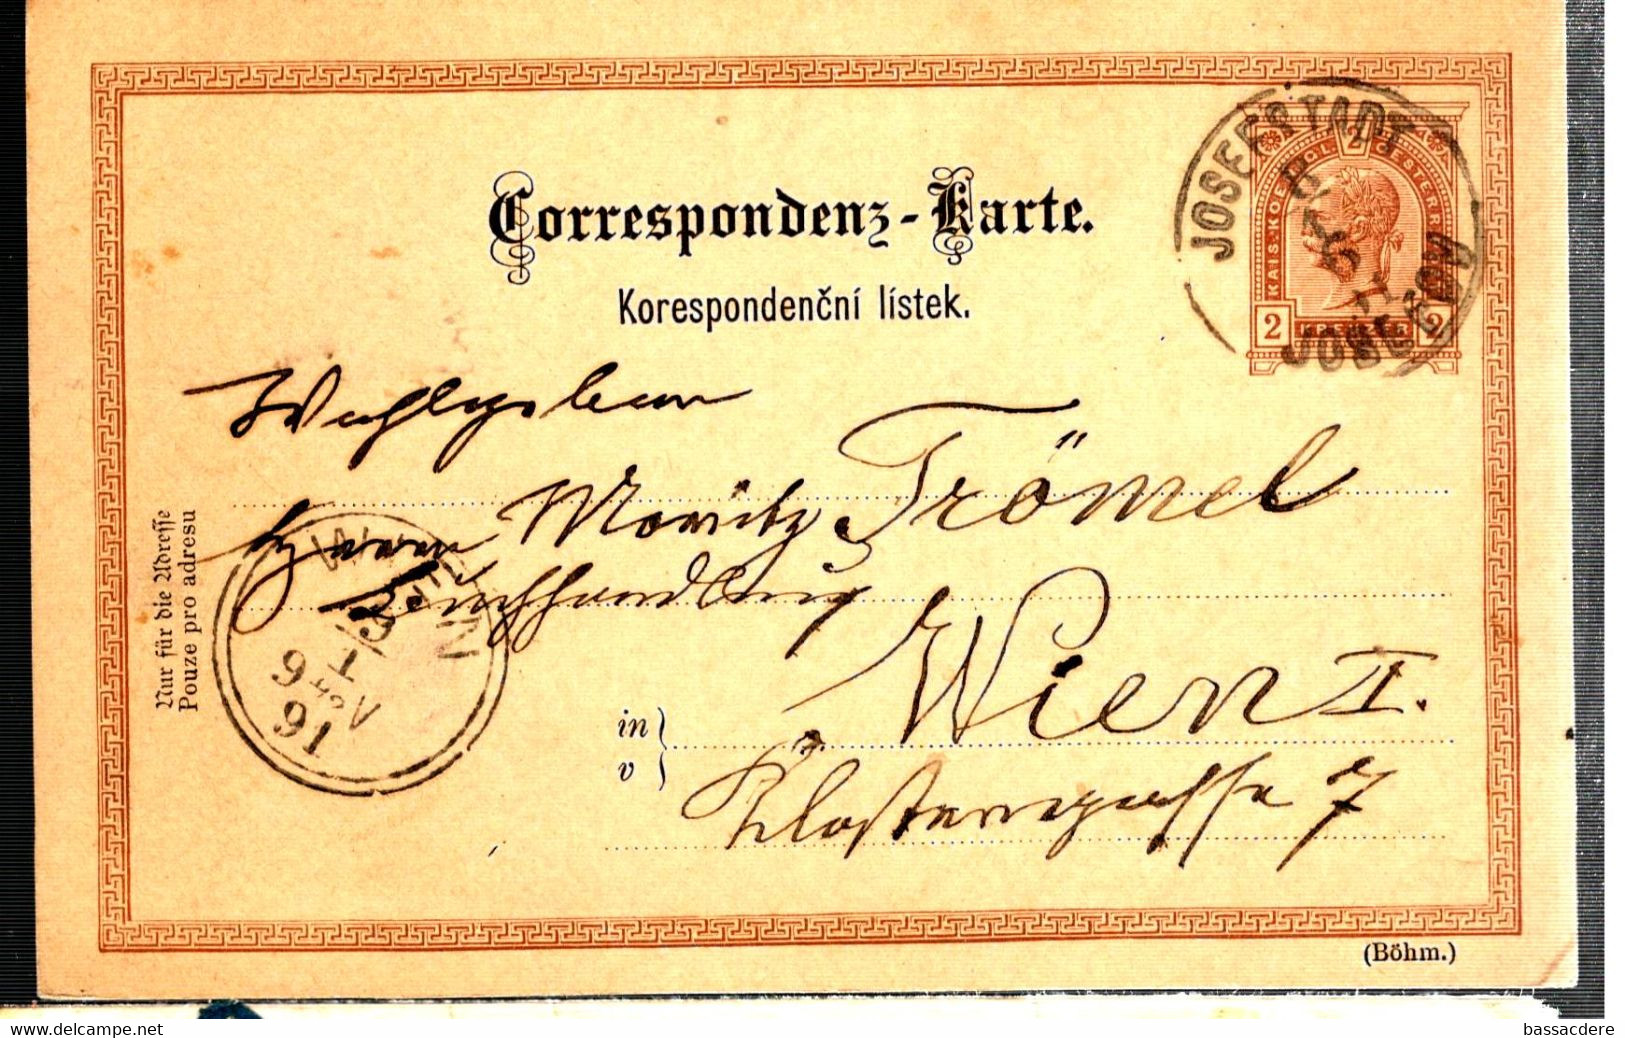 Correspondenz-Karte.
Korespondenční lístek.
JOSEFSTADT
JOSEFOV
KAIS. KÖNIGL. ÖSTERR.
2
2 KREUZER 2
Wohlgeboren
Herrn Moritz Trömel
Buchhandlung
Wien I.
in
v
Klostergasse 7
Nur für die Adresse
Pouze pro adresu
WIEN
1/1
9
91
(Böhm.)
delcampe.net
bassacdere